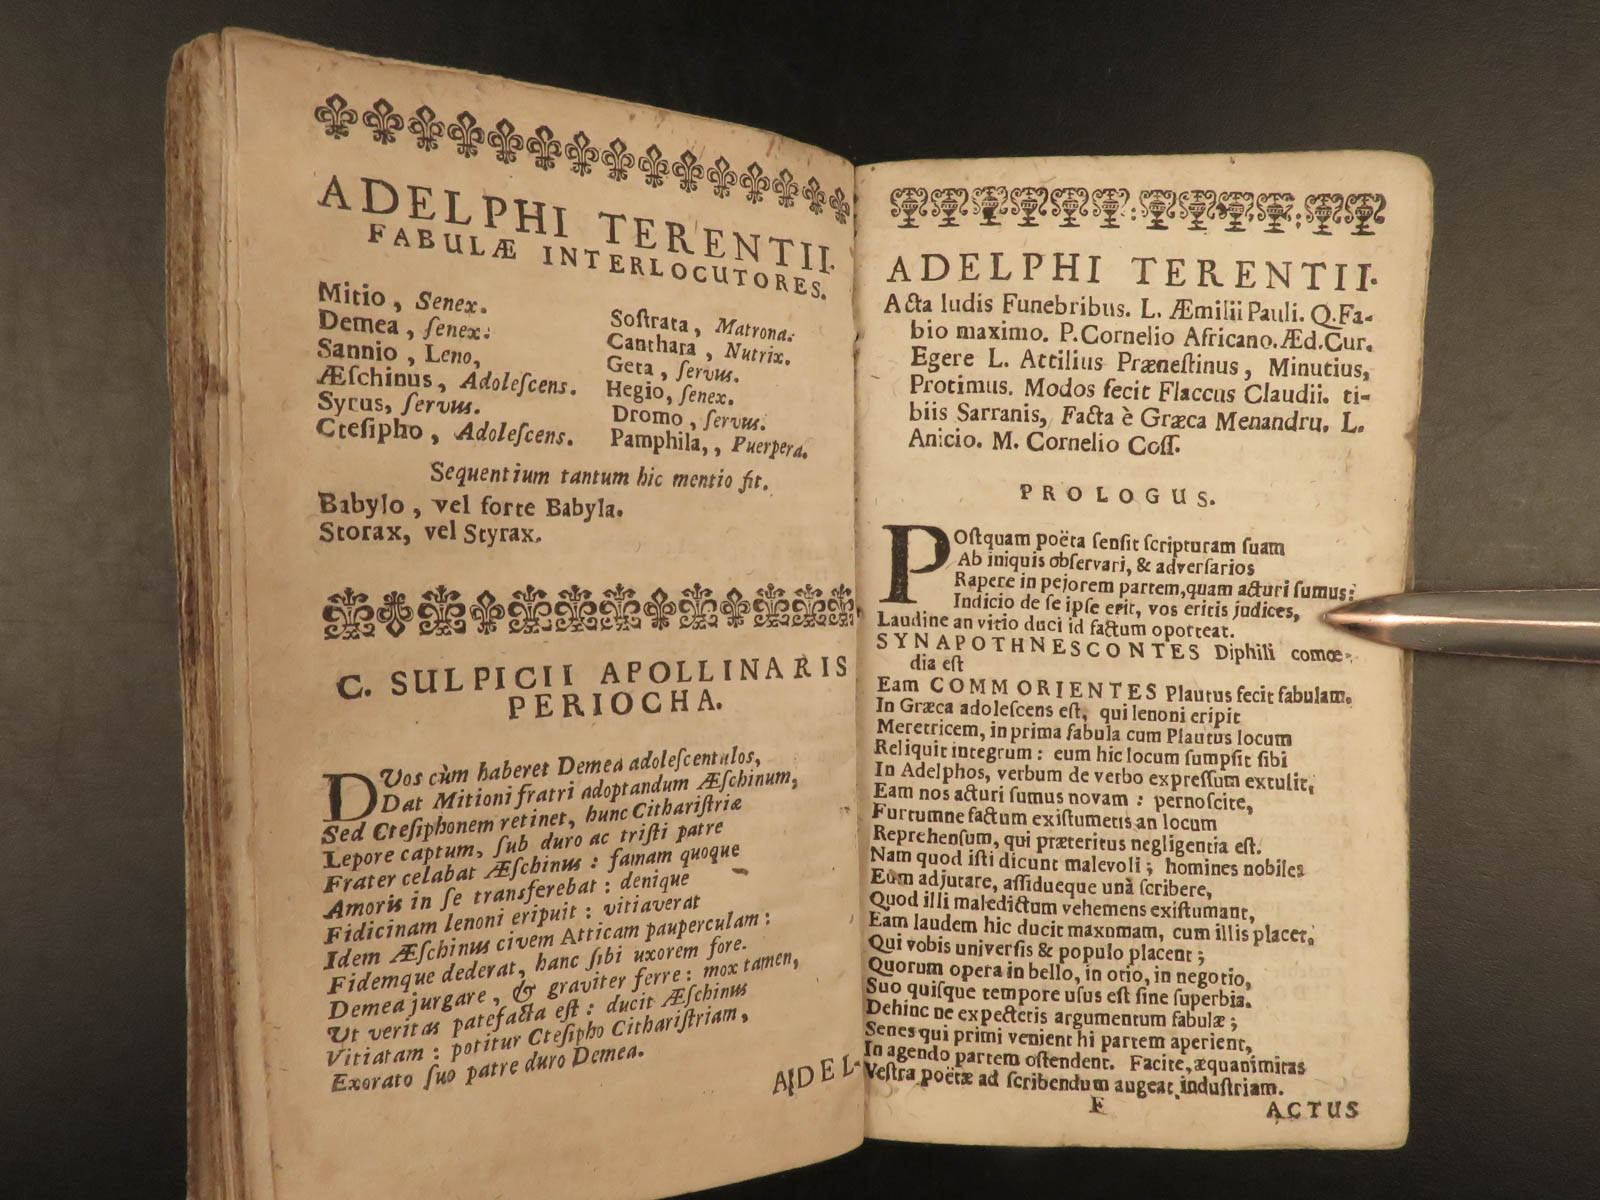 ADELPHI TERENTII.
FABULÆ INTERLOCUTORES.
Mitio, Senex.
Demea, ſenex.
Sannio, Leno,
Æſchinus, Adoleſcens.
Syrus, ſervus.
Cteſipho, Adoleſcens.
Soſtrata, Matrona.
Canthara, Nutrix.
Geta, ſervus.
Hegio, ſenex.
Dromo, ſervus.
Pamphila,, Puerpera.
Sequentium tantum hic mentio fit.
Babylo, vel forte Babyla.
Storax, vel Styrax.
C. SULPICII APOLLINARIS
PERIOCHA.
DUos cùm haberet Demea adoleſcentulos,
Dat Mitioni fratri adoptandum Æſchinum,
Sed Cteſiphonem retinet, hunc Cithariſtriæ
Lepore captum, ſub duro ac triſti patre
Frater celabat Æſchinus: famam quoque
Amoris in ſe transferebat: denique
Fidicinam lenoni eripuit: vitiaverat
Idem Æſchinus civem Atticam pauperculam:
Fidemque dederat, hanc ſibi uxorem fore.
Demea jurgare, & graviter ferre: mox tamen,
Ut veritas patefacta eſt: ducit Æſchinus
Vitiatam: potitur Cteſipho Cithariſtriam,
Exorato ſuo patre duro Demea.
ADEL-
ADELPHI TERENTII.
Acta ludis Funebribus. L. Æmilii Pauli. Q. Fa-
bio maximo. P. Cornelio Africano. Æd. Cur.
Egere L. Attilius Præneſtinus, Minutius,
Protimus. Modos fecit Flaccus Claudii. ti-
biis Sarranis, Facta è Græca Menandru. L.
Anicio. M. Cornelio Coſſ.
PROLOGUS.
POſtquam poëta ſenſit ſcripturam ſuam
Ab iniquis obſervari, & adverſarios
Rapere in pejorem partem, quam acturi ſumus:
Indicio de ſe ipſe erit, vos eritis judices,
Laudine an vitio duci id factum oporteat.
SYNAPOTHNESCONTES Diphili comœ-
dia eſt
Eam COMMORIENTES Plautus fecit fabulam.
In Græca adoleſcens eſt, qui lenoni eripit
Meretricem, in prima fabula cum Plautus locum
Reliquit integrum: eum hic locum ſumpſit ſibi
In Adelphos, verbum de verbo expreſſum extulit,
Eam nos acturi ſumus novam: pernoſcite,
Furtumne factum exiſtumetis an locum
Reprehenſum, qui præteritus negligentia eſt.
Nam quod iſti dicunt malevoli; homines nobiles
Eum adjutare, aſſidueque unà ſcribere,
Quod illi maledictum vehemens exiſtumant,
Eam laudem hic ducit maxumam, cum illis placet,
Qui vobis univerſis & populo placent;
Quorum opera in bello, in otio, in negotio,
Suo quiſque tempore uſus eſt ſine ſuperbia.
Dehinc ne expectetis argumentum fabulæ;
Senes qui primi venient hi partem aperient,
In agendo partem oſtendent. Facite, æquanimitas
Veſtra poëtæ ad ſcribendum augeat induſtriam.
F
ACTUS